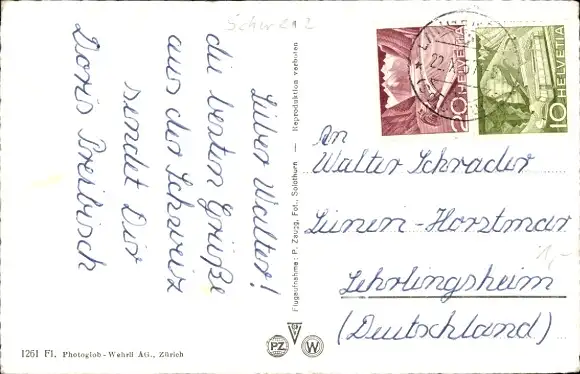 Schweiz
Lieber Walter!
die besten Grüße
aus der Schweiz
sendet Dir
Doris Breibisch
Flugaufnahme: P. Zaugg, Fot., Solothurn — Reproduktion verboten
HELVETIA 20
HELVETIA 10
22.
An
Walter Schrader
Lünen-Horstmar
Lehrlingsheim
(Deutschland)
1,-
1261 Fl. Photoglob-Wehrli AG., Zürich
PZ
W